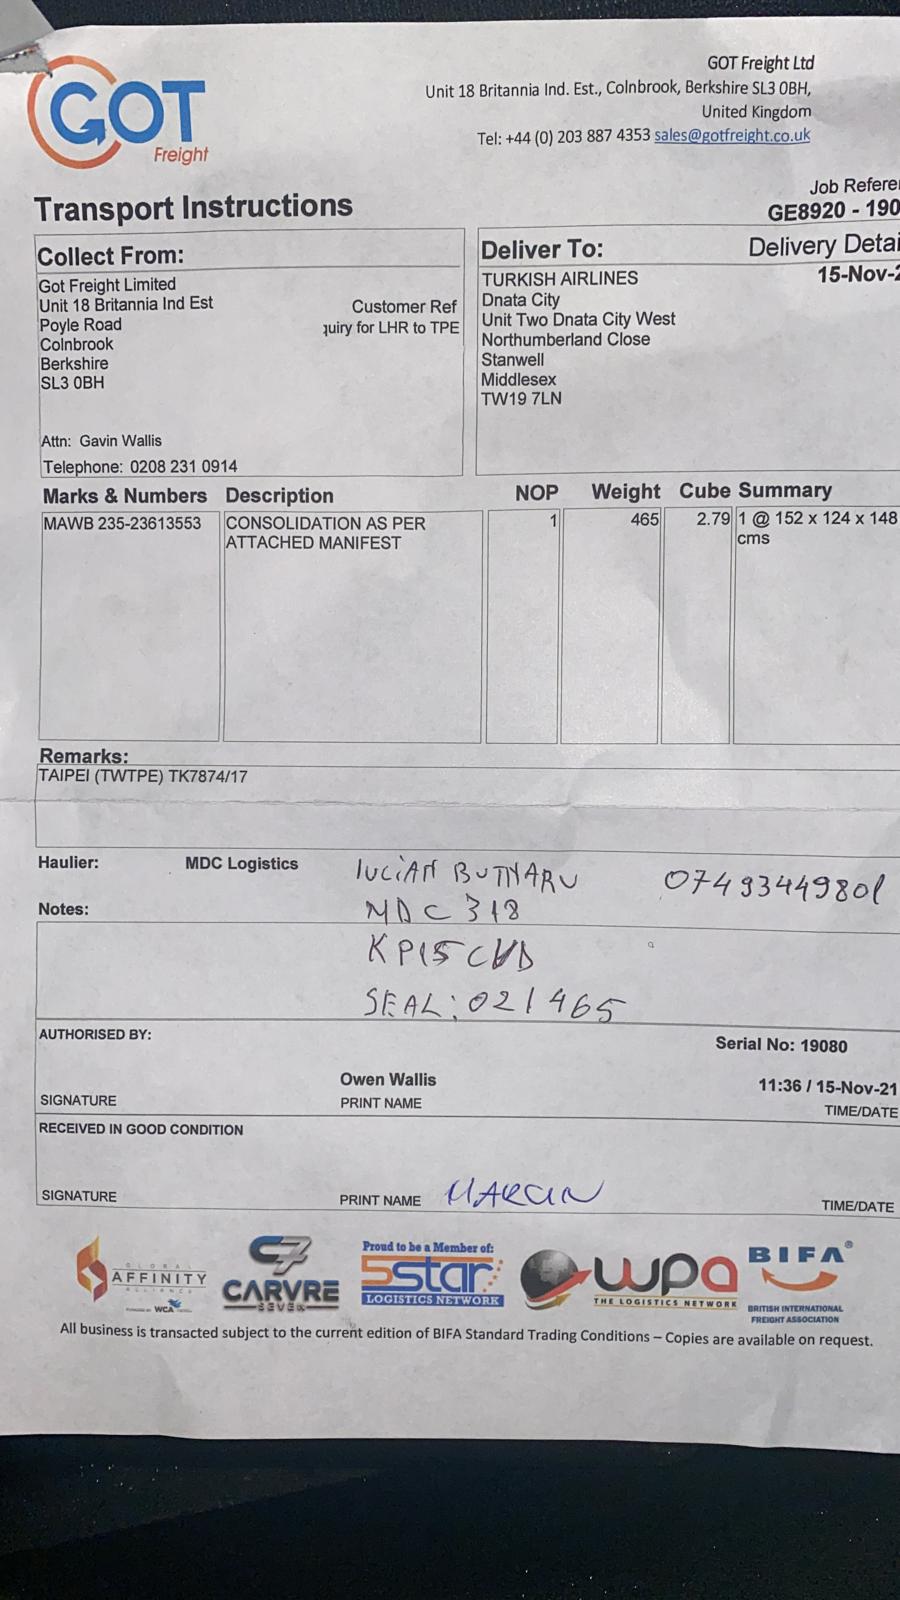 GOT
Freight
GOT Freight Ltd
Unit 18 Britannia Ind. Est., Colnbrook, Berkshire SL3 0BH,
United Kingdom
Tel: +44 (0) 203 887 4353 sales@gotfreight.co.uk
Transport Instructions
Job Refere
GE8920 - 190
Collect From:
Got Freight Limited
Unit 18 Britannia Ind Est
Poyle Road
Colnbrook
Berkshire
SL3 0BH
Customer Ref
quiry for LHR to TPE
Attn: Gavin Wallis
Telephone: 0208 231 0914
Deliver To:
Delivery Detai
15-Nov-2
TURKISH AIRLINES
Dnata City
Unit Two Dnata City West
Northumberland Close
Stanwell
Middlesex
TW19 7LN
Marks & Numbers Description NOP Weight Cube Summary
MAWB 235-23613553 CONSOLIDATION AS PER 1 465 2.79 1 @ 152 x 124 x 148
ATTACHED MANIFEST cms
Remarks:
TAIPEI (TWTPE) TK7874/17
Haulier: MDC Logistics LUCIAN BUTNARU 07493449801
Notes: MDC 318
KP15
SEAL: 021465
AUTHORISED BY:
Serial No: 19080
Owen Wallis 11:36 / 15-Nov-21
SIGNATURE PRINT NAME TIME/DATE
RECEIVED IN GOOD CONDITION
SIGNATURE PRINT NAME MARCIN TIME/DATE
GLOBAL
AFFINITY
ALLIANCE
WCA
C7
CARVRE
SEVEN
Proud to be a Member of:
5star
LOGISTICS NETWORK
wpa
THE LOGISTICS NETWORK
BIFA®
BRITISH INTERNATIONAL
FREIGHT ASSOCIATION
All business is transacted subject to the current edition of BIFA Standard Trading Conditions – Copies are available on request.